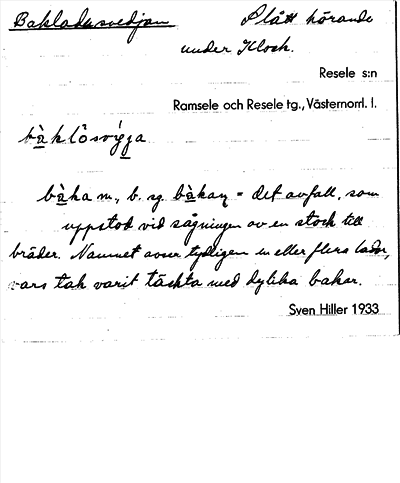 Bakladusvedjan Slått hörande
under Kloch.
Resele s:n
Ramsele och Resele tg., Västernorrl. l.
bàklôsvígga
bàka m., b. sg. bàkaɲ = det avfall, som
uppstod vid sågningen av en stock till
bräder. Namnet avser tydligen en eller flera lador,
vars tak varit täckta med dylika bakar.
Sven Hiller 1933